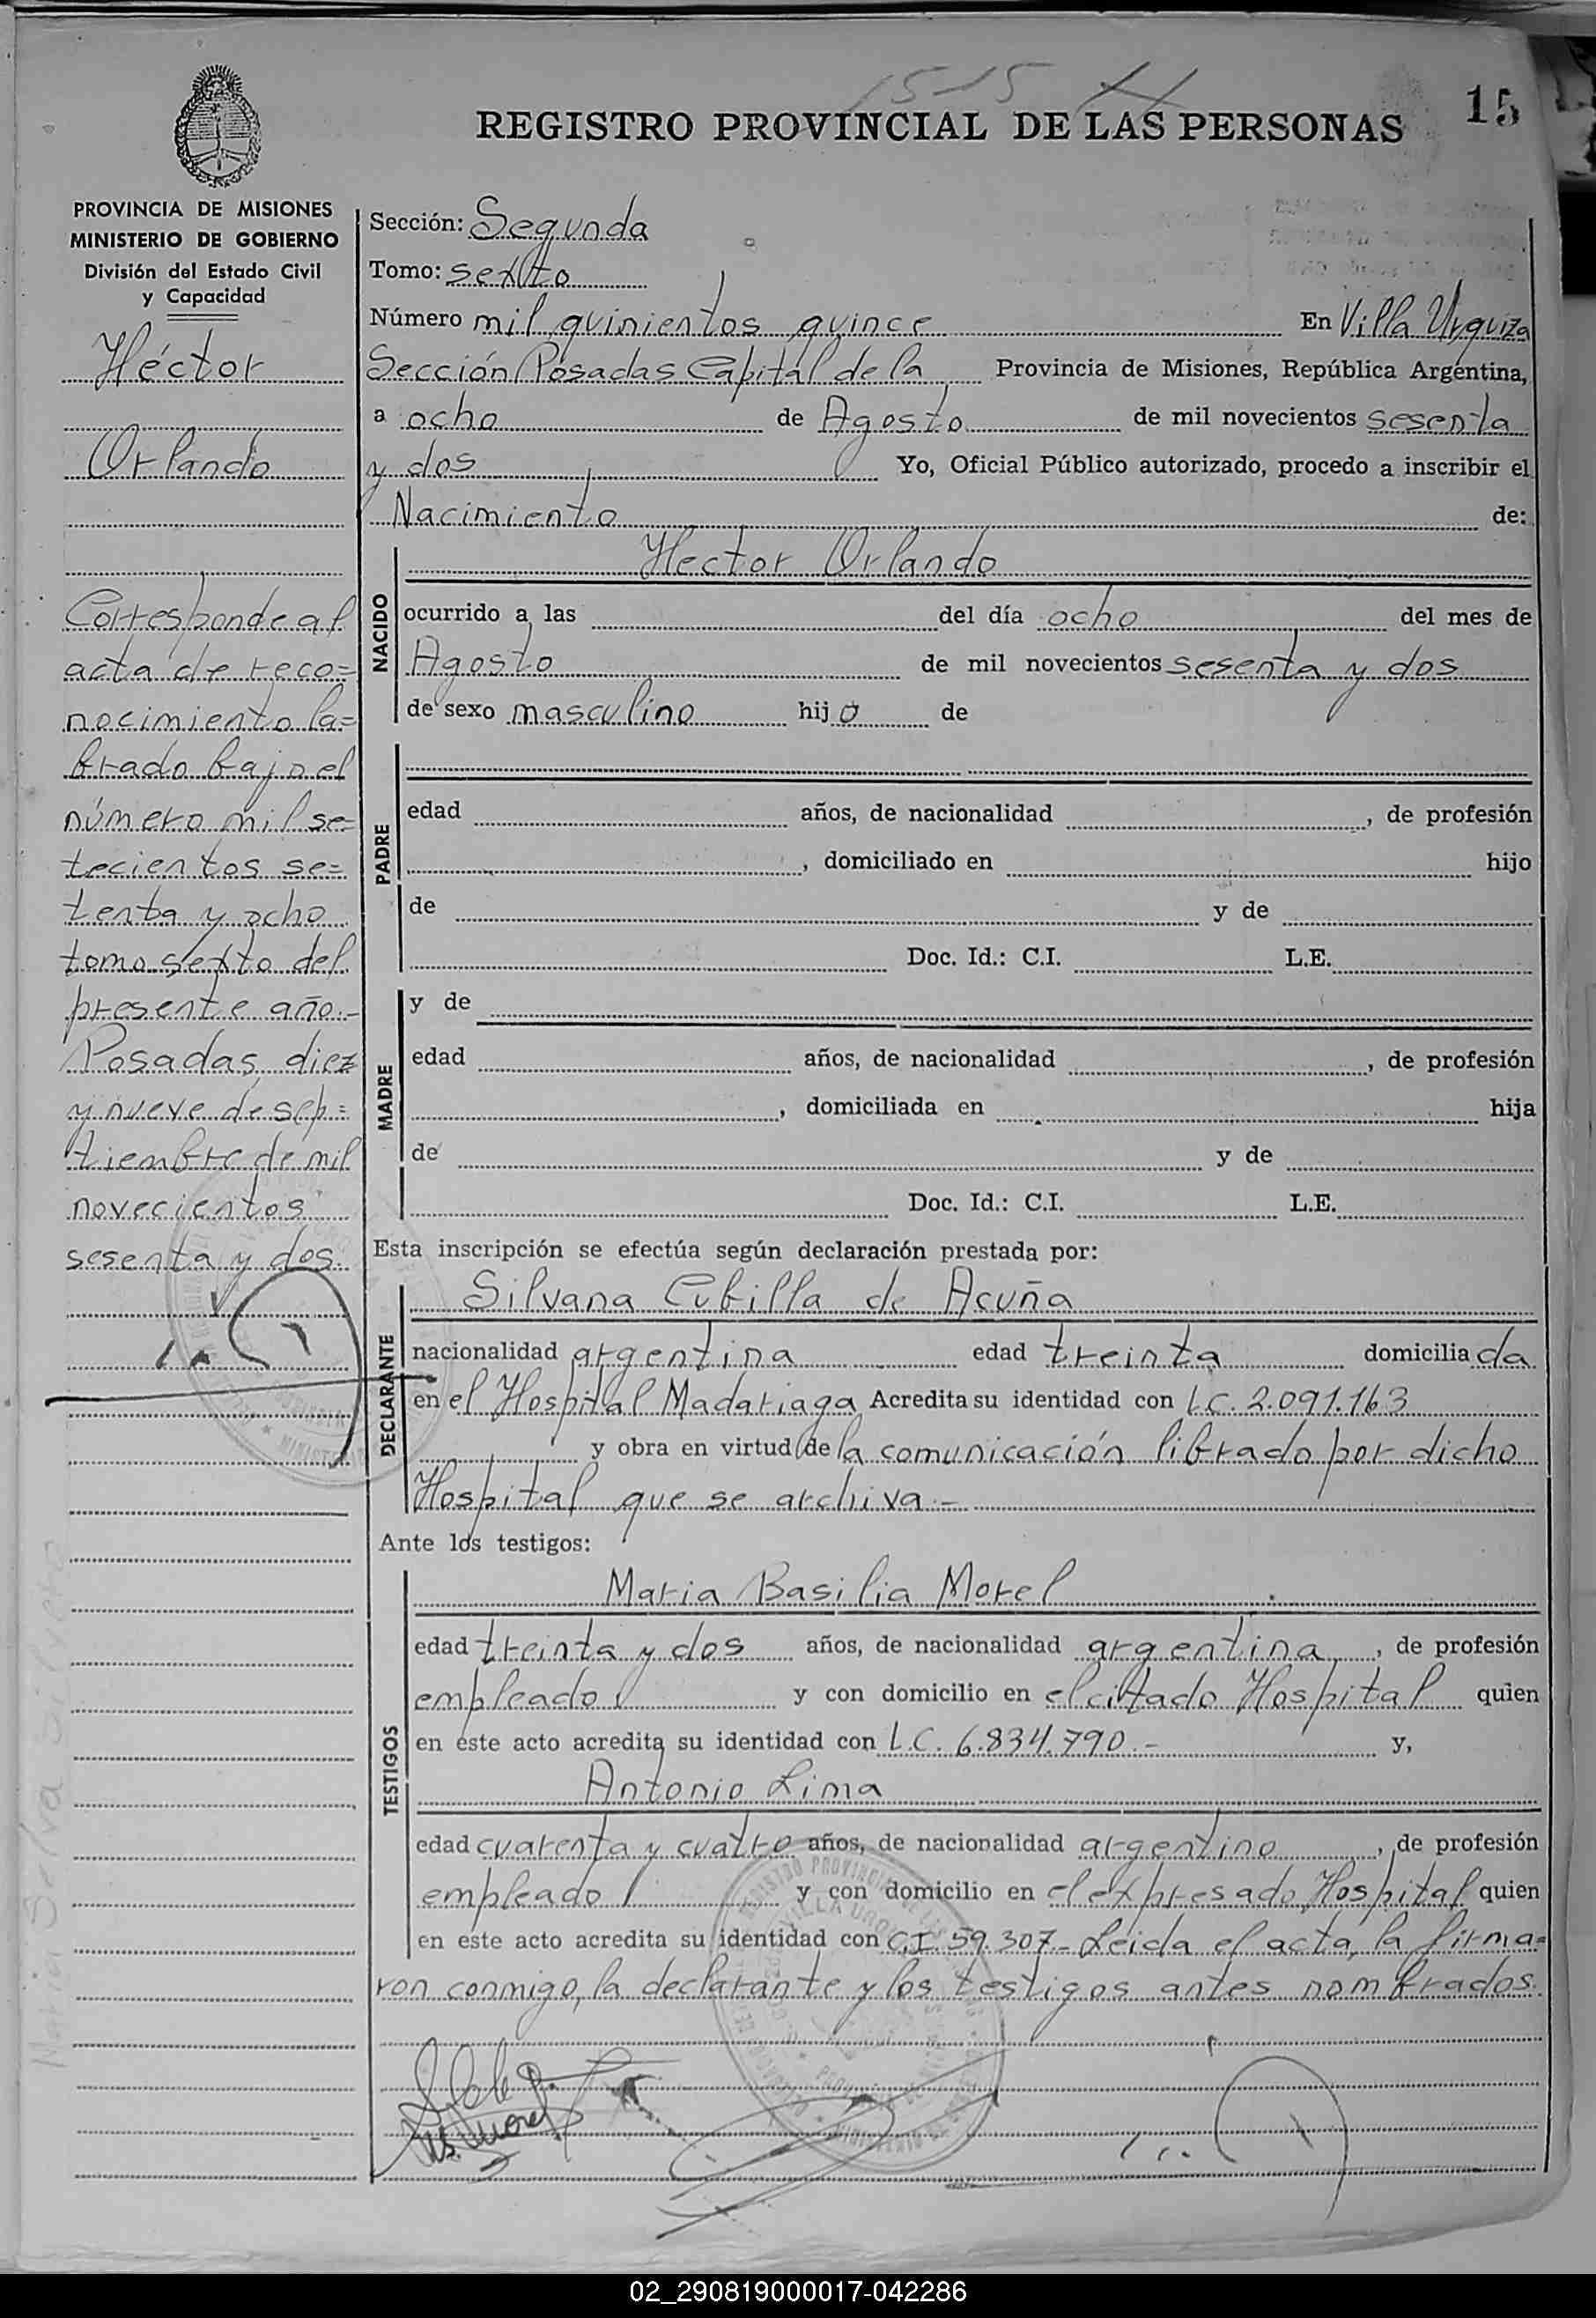 15-15
15
REGISTRO PROVINCIAL DE LAS PERSONAS
PROVINCIA DE MISIONES
MINISTERIO DE GOBIERNO
División del Estado Civil
y Capacidad
Héctor
Orlando
Corresponde al
acta de reco=
nocimiento la=
brado bajo el
número mil se=
tecientos se=
tenta y ocho
tomo sexto del
presente año.-
Posadas, diez
y nueve de sep=
tiembre de mil
novecientos
sesenta y dos.
Sección: Segunda
Tomo: sexto
Número mil quinientos quince En Villa Urquiza
Sección Posadas Capital de la Provincia de Misiones, República Argentina,
a ocho de Agosto de mil novecientos sesenta
y dos Yo, Oficial Público autorizado, procedo a inscribir el
Nacimiento de:
NACIDO
Hector Orlando
ocurrido a las del día ocho del mes de
Agosto de mil novecientos sesenta y dos
de sexo masculino hijo de
PADRE
edad años, de nacionalidad , de profesión
, domiciliado en hijo
de y de
Doc. Id.: C.I. L.E.
MADRE
y de
edad años, de nacionalidad , de profesión
, domiciliada en hija
de y de
Doc. Id.: C.I. L.E.
Esta inscripción se efectúa según declaración prestada por:
DECLARANTE
Silvana Cubilla de Acuña
nacionalidad argentina edad treinta domiciliada
en el Hospital Madariaga Acredita su identidad con L.C. 2.091.163
y obra en virtud de la comunicación librado por dicho
Hospital que se archiva.-
Ante los testigos:
TESTIGOS
Maria Basilia Morel
edad treinta y dos años, de nacionalidad argentina, de profesión
empleado y con domicilio en el citado Hospital quien
en este acto acredita su identidad con L.C. 6.834.790.- y,
Antonio Lima
edad cuarenta y cuatro años, de nacionalidad argentino, de profesión
empleado y con domicilio en el expresado Hospital quien
en este acto acredita su identidad con C.I. 59.307- Leida el acta, la firma=
ron conmigo, la declarante y los testigos antes nombrados.
02_290819000017-042286